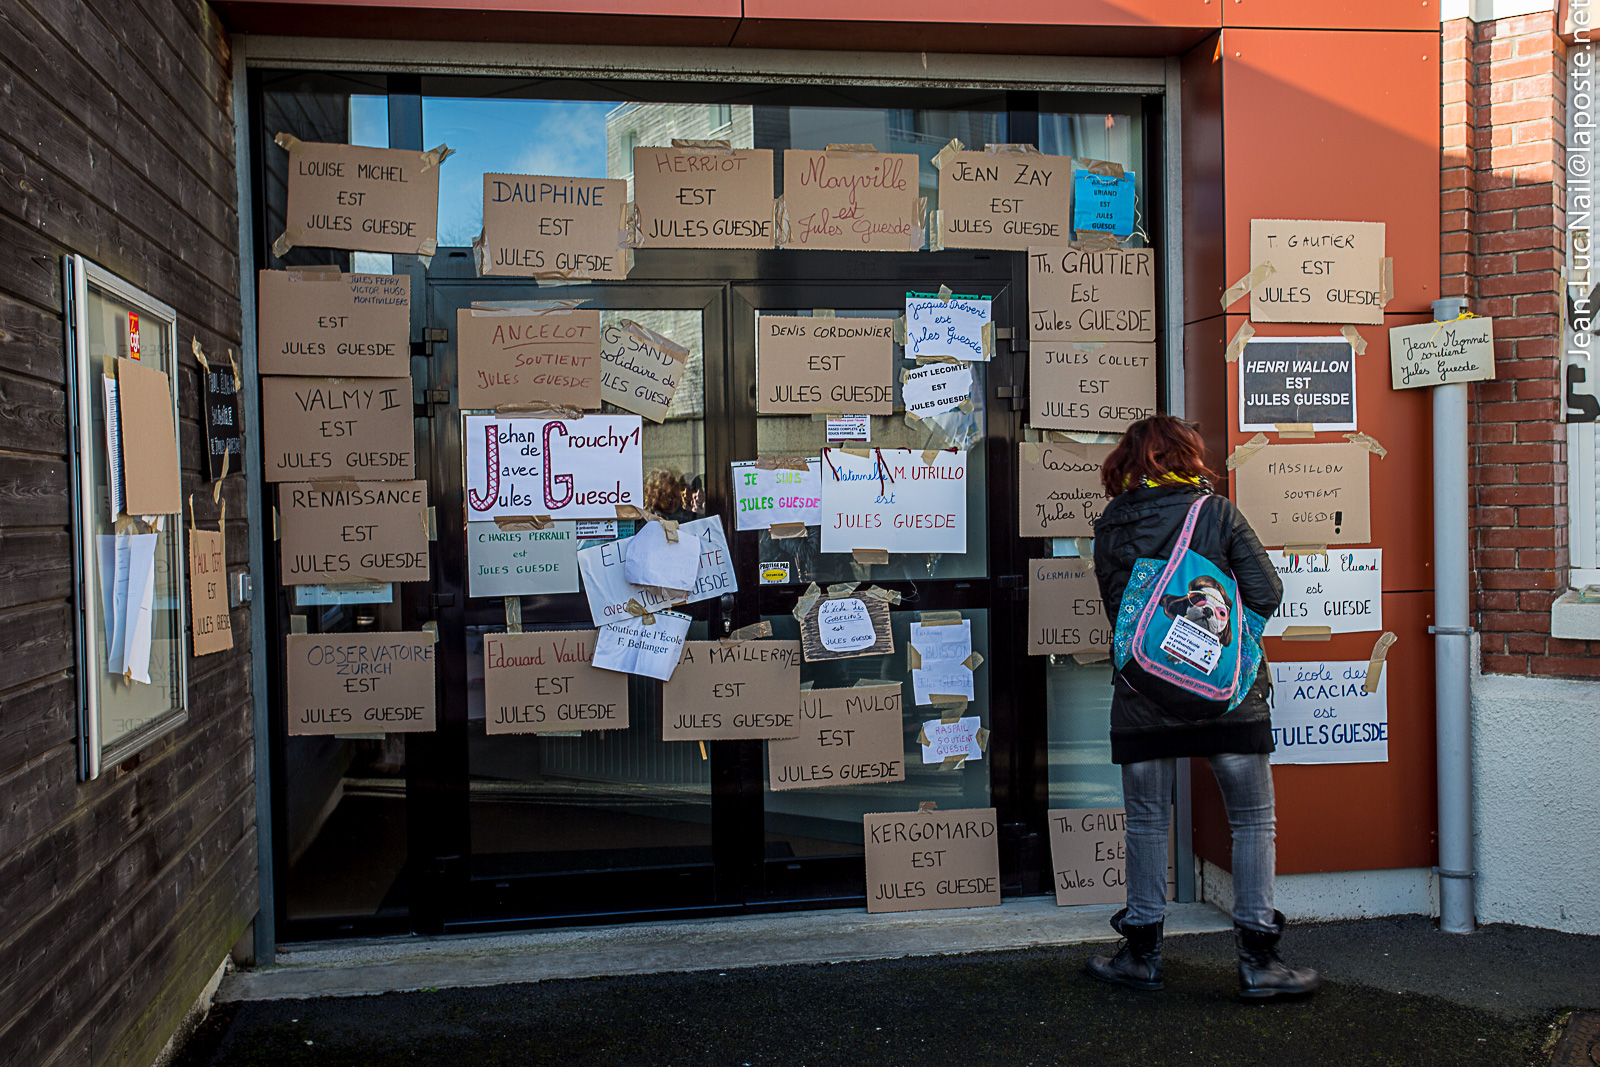 LOUISE MICHEL
EST
JULES GUESDE
DAUPHINE
EST
JULES GUESDE
HERRIOT
EST
JULES GUESDE
Mayville
est
Jules Guesde
JEAN ZAY
EST
JULES GUESDE
BRIAND
EST
JULES
GUESDE
JULES FERRY
VICTOR HUGO
MONTIVILLIERS
EST
JULES GUESDE
ANCELOT
SOUTIENT
JULES GUESDE
G SAND
solidaire de
JULES GUESDE
DENIS CORDONNIER
EST
JULES GUESDE
Jacques Prévert
est
Jules Guesde
MONT LECOMTE
EST
JULES GUESDE
Th. GAUTIER
Est
Jules GUESDE
JULES COLLET
EST
JULES GUESDE
T. GAUTIER
EST
JULES GUESDE
HENRI WALLON
EST
JULES GUESDE
Jean Monnet
soutient
Jules Guesde
VALMY II
EST
JULES GUESDE
Jehan de Grouchy 1
avec
Jules Guesde
JE SUIS
JULES GUESDE
Maternelle M. UTRILLO
est
JULES GUESDE
Cassar
soutien
Jules Gu
MASSILLON
SOUTIENT
J. GUESDE!
RENAISSANCE
EST
JULES GUESDE
CHARLES PERRAULT
est
JULES GUESDE
EL
1
ITE
avec JULES GUESDE
Soutien de l'École
F. Bellanger
PROTÉGÉ PAR
L'école Les
GOBELINS
est
JULES GUESDE
GERMAINE
EST
JULES GU
nelle Paul Eluard
est
JULES GUESDE
PAUL BERT
EST
JULES GUESDE
OBSERVATOIRE
ZURICH
EST
JULES GUESDE
Edouard Vailla
EST
JULES GUESDE
A MAILLERAYE
EST
JULES GUESDE
BUISSON
JULES GUESDE
UL MULOT
EST
JULES GUESDE
RASPAIL
SOUTIENT
GUESDE
L'école des
ACACIAS
est
JULES GUESDE
KERGOMARD
EST
JULES GUESDE
Th. GAUT
Est
Jules GU
Jean-Luc.Nail@laposte.net